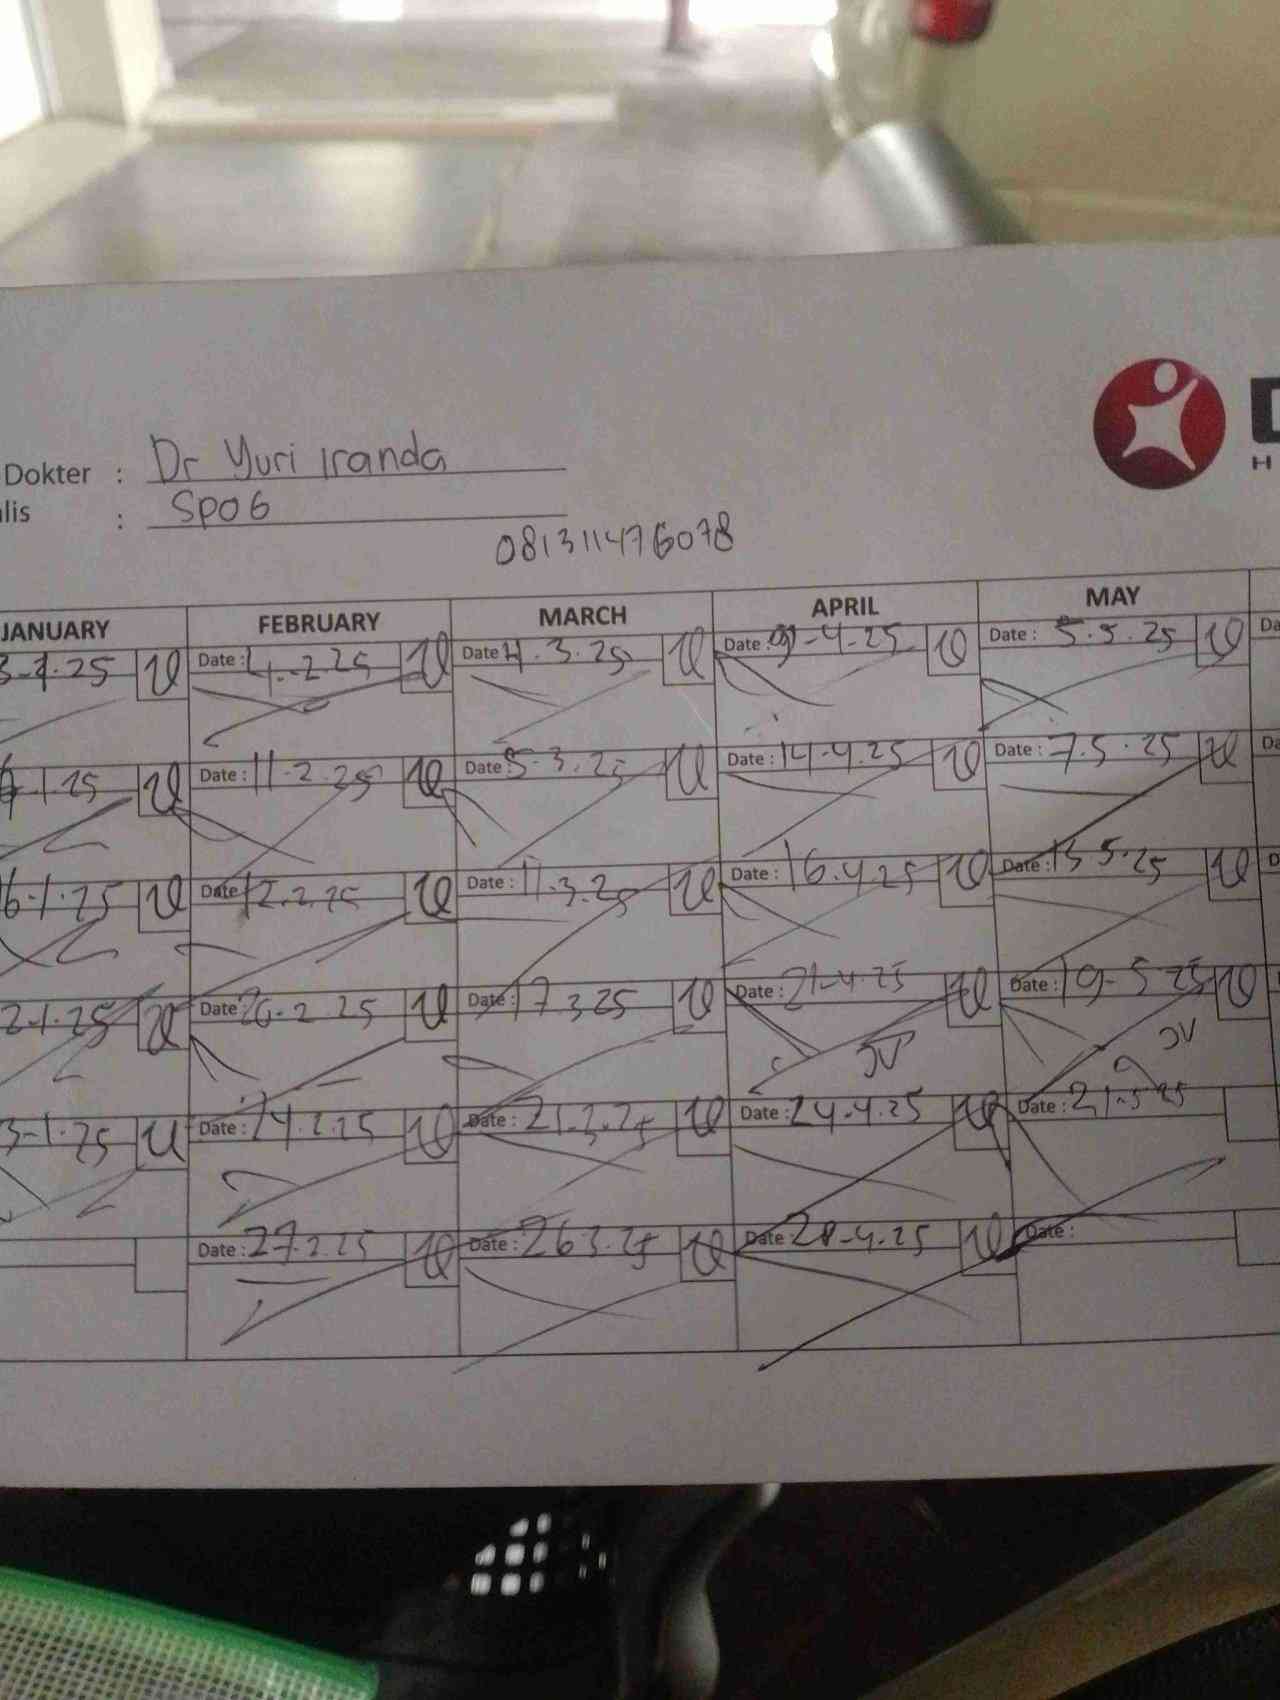 D
H
Dokter : Dr Yuri Iranda
alis : SPOG
081311476078
JANUARY FEBRUARY MARCH APRIL MAY
3-1-25 Date: 4-2.25 Date: 4.3.25 Date: 9-4-25 Date: 5.5.25 Da
-1.25 Date: 11-2.25 Date: 5-3.25 Date: 14-4.25 Date: 7.5.25 Da
6-1.25 Date: 12.2.25 Date: 11.3.25 Date: 16.4.25 Date: 13 5.25 D
2-1.25 Date: 20-2.25 Date: 17 3 25 Date: 21-4.25 Date: 19-5 25
3-1.25 Date: 24.2.25 Date: 21.3.25 Date: 24-4.25 Date: 21-5-25
Date: 27.2.25 Date: 26 3.25 Date: 28-4.25 Date: